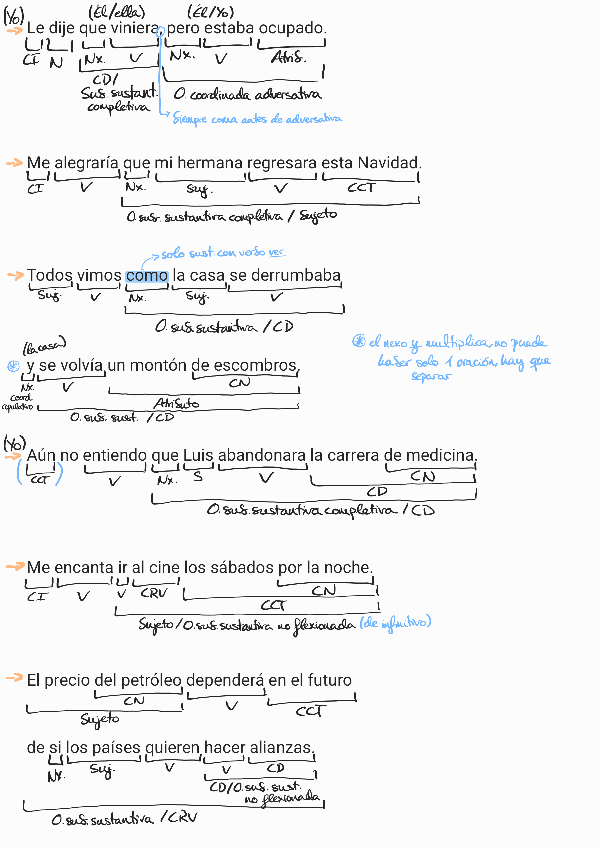 (Yo) (Él/ella) (Él/Yo)
→ Le dije que viniera, pero estaba ocupado.
CI N Nx. V Nx. V Atrib.
CD/ O. coordinada adversativa
Sub. sustant.
completiva
→ Siempre coma antes de adversativa
→ Me alegraría que mi hermana regresara esta Navidad.
CI V Nx. Suj. V CCT
O. sub. sustantiva completiva / Sujeto
→ solo sust. con verbo ver.
→ Todos vimos como la casa se derrumbaba
Suj. V Nx. Suj. V
O. sub. sustantiva / CD
(la casa)
* y se volvía un montón de escombros.
Nx. coord. copulativo V CN
Atributo
O. sub. sust. / CD
* el nexo y multiplica, no puede
haber solo 1 oración, hay que
separar
(Yo)
→ Aún no entiendo que Luis abandonara la carrera de medicina.
(CCT) V Nx. S V CN
CD
O. sub. sustantiva completiva / CD
→ Me encanta ir al cine los sábados por la noche.
CI V V CRV CN
CCT
Sujeto / O. sub. sustantiva no flexionada (de infinitivo)
→ El precio del petróleo dependerá en el futuro
CN V CCT
Sujeto
de si los países quieren hacer alianzas.
Nx. Suj. V V CD
CD/O. sub. sust.
no flexionada
O. sub. sustantiva / CRV